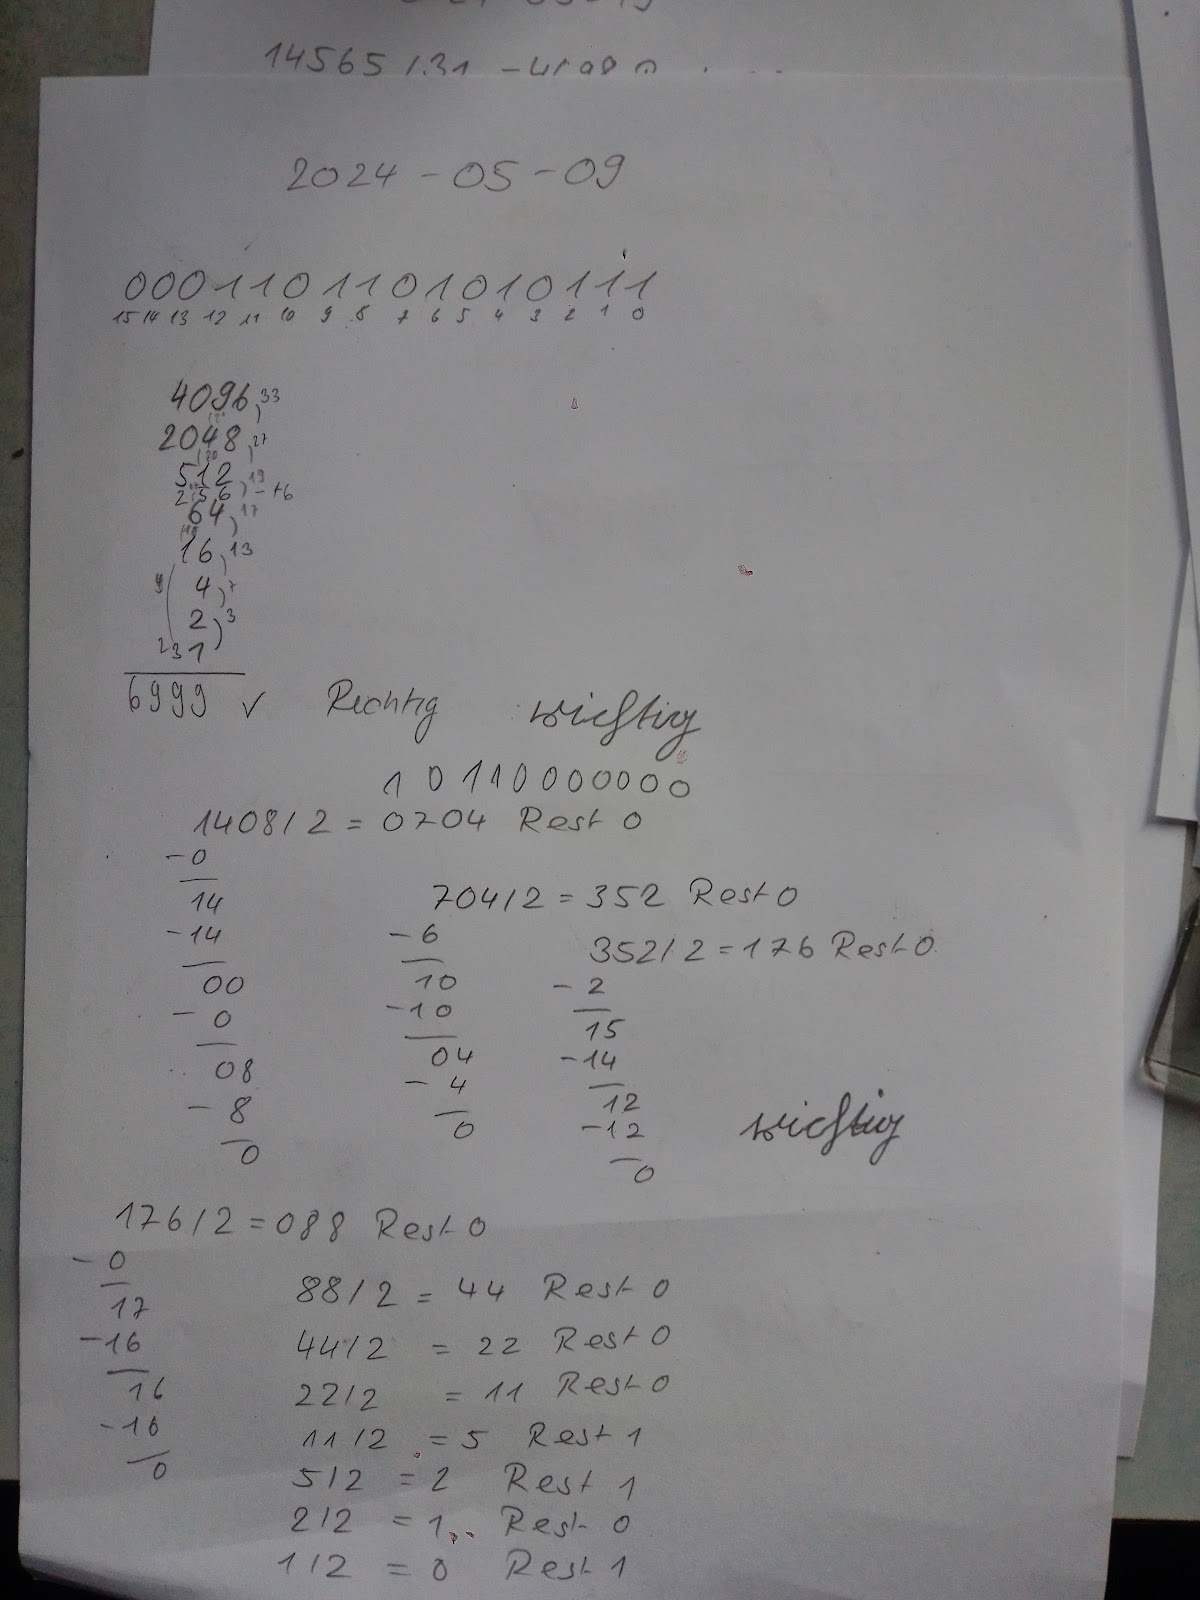 14565 / 31
2024-05-09
0001101101010111
15 14 13 12 11 10 9 8 7 6 5 4 3 2 1 0
4096 33
2048 27
512 19
256 -+6
64 17
16 13
4 7
2 3
1
6999 ✓ Richtig wichtig
10110000000
1408/2 = 0704 Rest 0
-0
14
-14
00
-0
08
-8
0
704/2 = 352 Rest 0
-6
10
-10
04
-4
0
352/2 = 176 Rest 0
-2
15
-14
12
-12
0
wichtig
176/2 = 088 Rest 0
-0
17
-16
16
-16
0
88/2 = 44 Rest 0
44/2 = 22 Rest 0
22/2 = 11 Rest 0
11/2 = 5 Rest 1
5/2 = 2 Rest 1
2/2 = 1 Rest 0
1/2 = 0 Rest 1